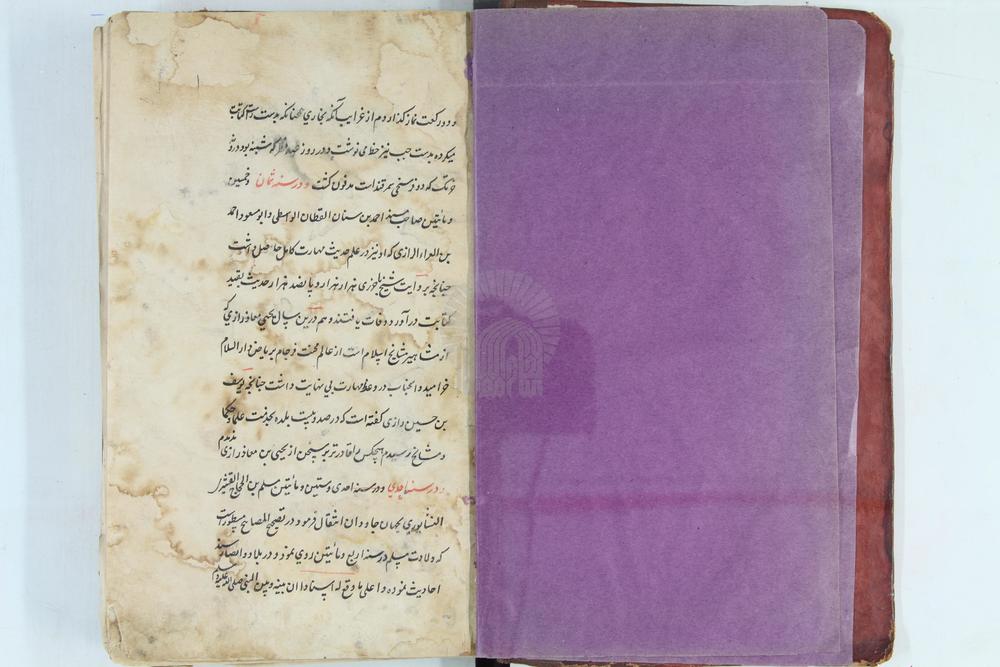 و دو رکعت نماز گذاردم از غرایب آنکه بخاری چنانکه بدست راست کتابت
میکرده بدست چپ نیز خط می نوشت و در روز گوشبنه بود در
خرتنگ که دو فرسخی سمرقند است مدفون گشت و در سنه ثمان و خمسین
و مائتین صاحب مسند احمد بن سنان القطان الواسطی و ابو مسعود احمد
بن الفراء الرازی که او نیز در علم حدیث مهارت کامل حاصل داشت
چنانچه بروایت شیخ جزری هزار هزار و پانصد هزار حدیث بقید
کتابت در آورد وفات یافتند و هم درین سال یحیی معاذ رازی که
از مشاهیر مشایخ اسلام است از عالم محنت فرجام بریاض دار السلام
خرامید و آنجناب در وعظ مهارت بی نهایت داشت چنانچه یوسف
بن حسین رازی گفته است که در صد و بیست بلده بخدمت علما و حکما
و مشایخ رسیدم هیچکس را قادرتر بر سخن از یحیی بن معاذ رازی
ندیدم
و در سنه احدی و ستین و مائتین مسلم بن الحجاج القشیری
النیشابوری بجهان جاودان انتقال فرمود و در تصحیح المصابیح مسطور است
که ولادت مسلم در سنه اربع و مائتین روی نمود و در بلاد
احادیث نموده و اعلی ما وقع له اسنادا ان بینه و بین النبی صلی الله علیه وسلم